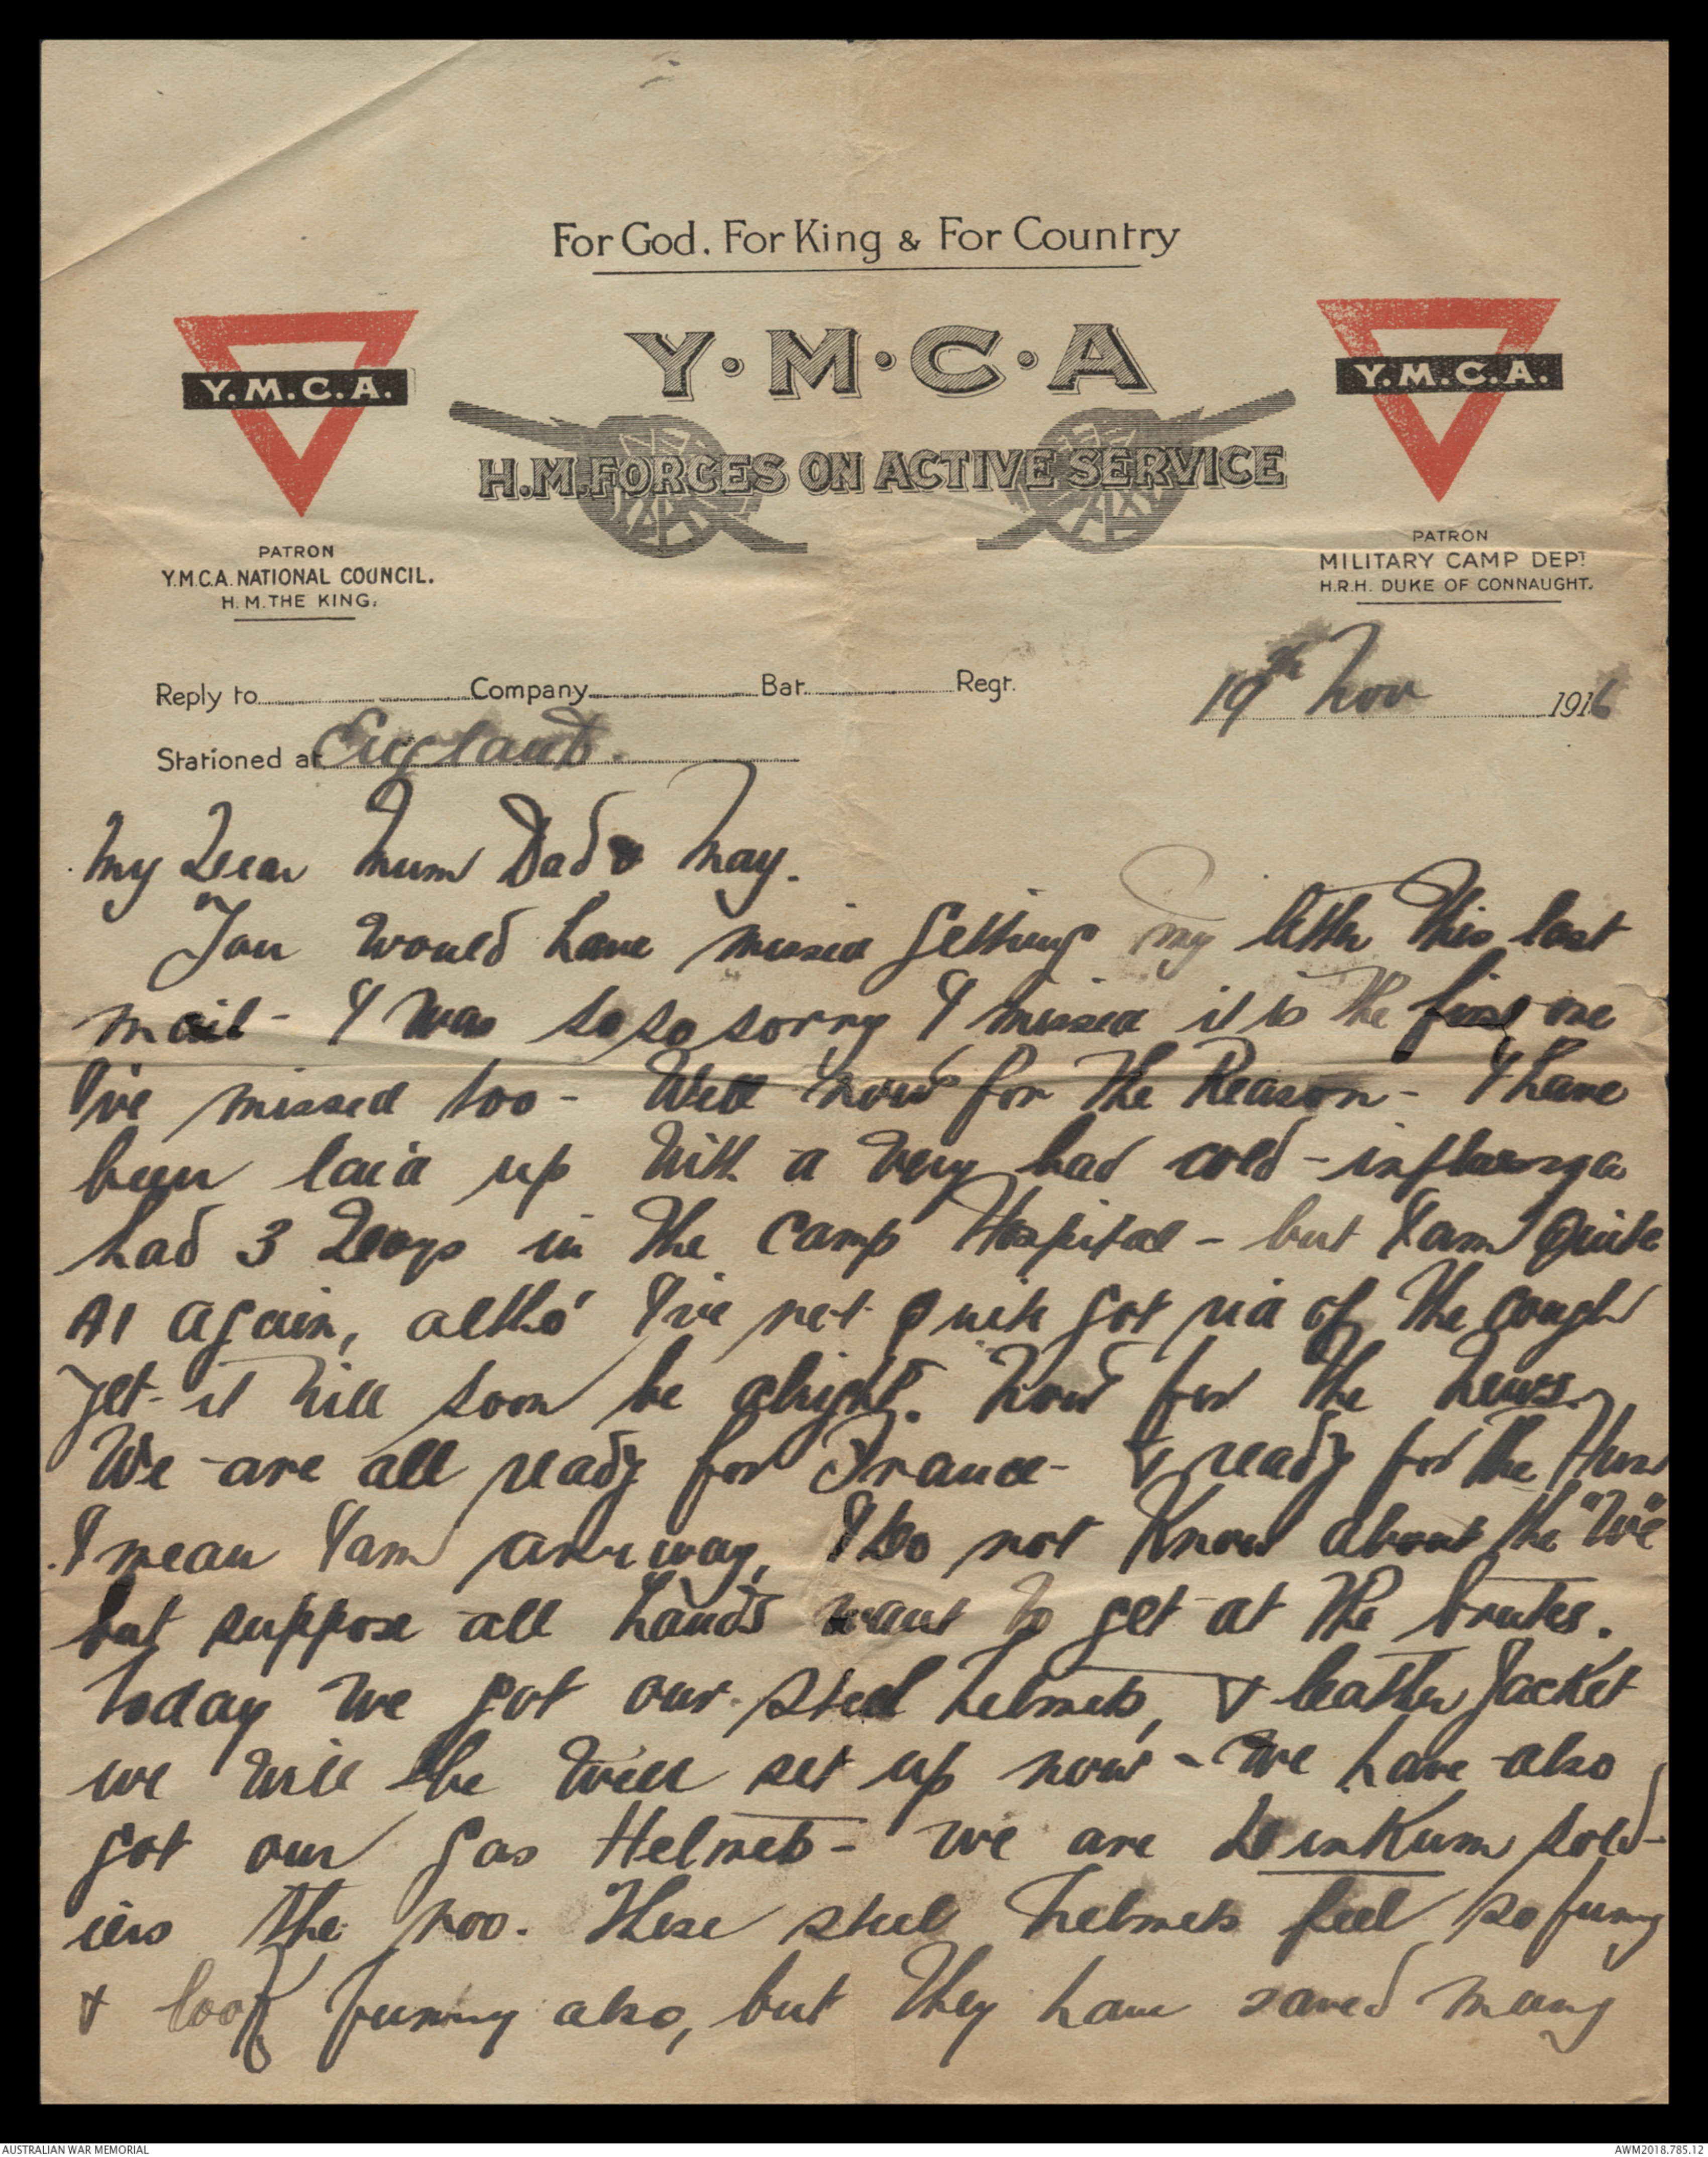 For God, For King & For Country
Y·M·C·A
Y.M.C.A.
Y.M.C.A.
H.M. FORCES ON ACTIVE SERVICE
PATRON
Y.M.C.A. NATIONAL COUNCIL.
H.M. THE KING.
PATRON
MILITARY CAMP DEPT.
H.R.H. DUKE OF CONNAUGHT.
Reply to Company Bat. Regt. 19th Nov 1916
Stationed at England.
My Dear Mum Dad & May.
You would have missed getting my letter this last
mail - I was so so sorry I missed it is the first one
I've missed too - Well now for the Reason - I have
been laid up with a very bad cold - influenza
had 3 Days in the Camp Hospital - but I am quite
A1 again, altho' I've not quite got rid of the cough
yet - it will soon be alright. Now for the news.
We are all ready for France - & ready for the Huns
I mean I am anyway, I do not know about the "We"
but suppose all hands want to get at the brutes.
Today we got our steel helmets, & leather Jacket
we will be well set up now - we have also
got our gas Helmets - we are Dinkum sold-
iers the noo. These steel helmets feel so funny
& look funny also, but they have saved many
AUSTRALIAN WAR MEMORIAL
AWM2018.785.12